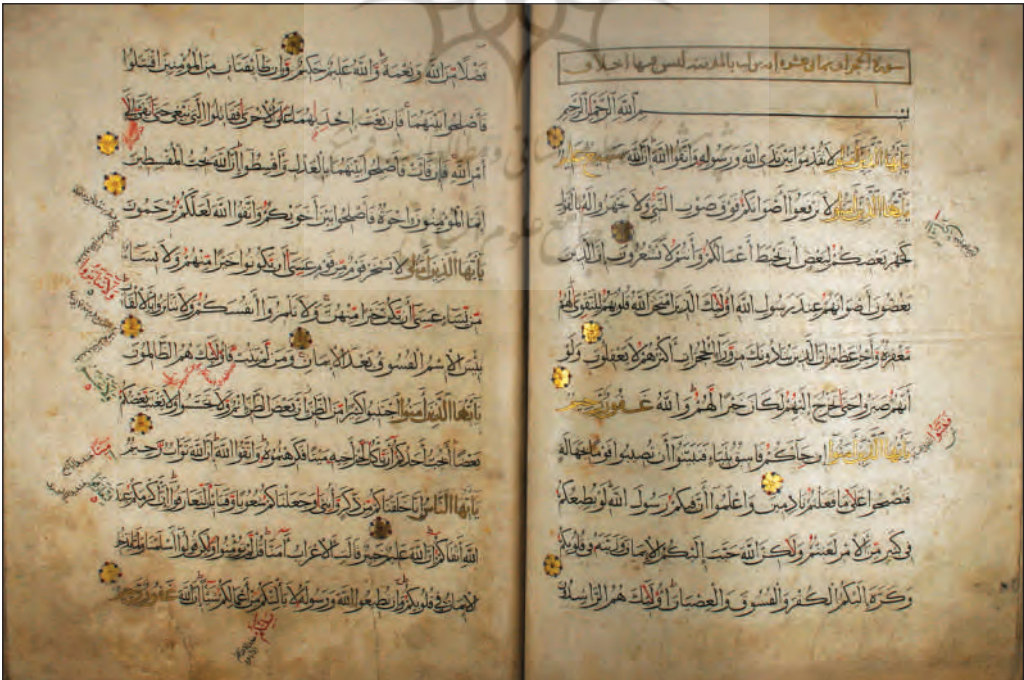 سورة الحجرات ثمان عشرة آية بالمدينة ليس فيها اختلاف
بسم الله الرحمن الرحيم
يَا أَيُّهَا الَّذِينَ آمَنُوا لَا تُقَدِّمُوا بَيْنَ يَدَيِ اللَّهِ وَرَسُولِهِ وَاتَّقُوا اللَّهَ إِنَّ اللَّهَ سَمِيعٌ عَلِيمٌ
يَا أَيُّهَا الَّذِينَ آمَنُوا لَا تَرْفَعُوا أَصْوَاتَكُمْ فَوْقَ صَوْتِ النَّبِيِّ وَلَا تَجْهَرُوا لَهُ بِالْقَوْلِ
كَجَهْرِ بَعْضِكُمْ لِبَعْضٍ أَنْ تَحْبَطَ أَعْمَالُكُمْ وَأَنْتُمْ لَا تَشْعُرُونَ إِنَّ الَّذِينَ
يَغُضُّونَ أَصْوَاتَهُمْ عِنْدَ رَسُولِ اللَّهِ أُولَئِكَ الَّذِينَ امْتَحَنَ اللَّهُ قُلُوبَهُمْ لِلتَّقْوَى لَهُمْ
مَغْفِرَةٌ وَأَجْرٌ عَظِيمٌ إِنَّ الَّذِينَ يُنَادُونَكَ مِنْ وَرَاءِ الْحُجُرَاتِ أَكْثَرُهُمْ لَا يَعْقِلُونَ وَلَوْ
أَنَّهُمْ صَبَرُوا حَتَّى تَخْرُجَ إِلَيْهِمْ لَكَانَ خَيْرًا لَهُمْ وَاللَّهُ غَفُورٌ رَحِيمٌ
يَا أَيُّهَا الَّذِينَ آمَنُوا إِنْ جَاءَكُمْ فَاسِقٌ بِنَبَإٍ فَتَبَيَّنُوا أَنْ تُصِيبُوا قَوْمًا بِجَهَالَةٍ
فَتُصْبِحُوا عَلَى مَا فَعَلْتُمْ نَادِمِينَ وَاعْلَمُوا أَنَّ فِيكُمْ رَسُولَ اللَّهِ لَوْ يُطِيعُكُمْ
فِي كَثِيرٍ مِنَ الْأَمْرِ لَعَنِتُّمْ وَلَكِنَّ اللَّهَ حَبَّبَ إِلَيْكُمُ الْإِيمَانَ وَزَيَّنَهُ فِي قُلُوبِكُمْ
وَكَرَّهَ إِلَيْكُمُ الْكُفْرَ وَالْفُسُوقَ وَالْعِصْيَانَ أُولَئِكَ هُمُ الرَّاشِدُونَ
فَضْلًا مِنَ اللَّهِ وَنِعْمَةً وَاللَّهُ عَلِيمٌ حَكِيمٌ وَإِنْ طَائِفَتَانِ مِنَ الْمُؤْمِنِينَ اقْتَتَلُوا
فَأَصْلِحُوا بَيْنَهُمَا فَإِنْ بَغَتْ إِحْدَاهُمَا عَلَى الْأُخْرَى فَقَاتِلُوا الَّتِي تَبْغِي حَتَّى تَفِيءَ إِلَى
أَمْرِ اللَّهِ فَإِنْ فَاءَتْ فَأَصْلِحُوا بَيْنَهُمَا بِالْعَدْلِ وَأَقْسِطُوا إِنَّ اللَّهَ يُحِبُّ الْمُقْسِطِينَ
إِنَّمَا الْمُؤْمِنُونَ إِخْوَةٌ فَأَصْلِحُوا بَيْنَ أَخَوَيْكُمْ وَاتَّقُوا اللَّهَ لَعَلَّكُمْ تُرْحَمُونَ
يَا أَيُّهَا الَّذِينَ آمَنُوا لَا يَسْخَرْ قَوْمٌ مِنْ قَوْمٍ عَسَى أَنْ يَكُونُوا خَيْرًا مِنْهُمْ وَلَا نِسَاءٌ
مِنْ نِسَاءٍ عَسَى أَنْ يَكُنَّ خَيْرًا مِنْهُنَّ وَلَا تَلْمِزُوا أَنْفُسَكُمْ وَلَا تَنَابَزُوا بِالْأَلْقَابِ
بِئْسَ الِاسْمُ الْفُسُوقُ بَعْدَ الْإِيمَانِ وَمَنْ لَمْ يَتُبْ فَأُولَئِكَ هُمُ الظَّالِمُونَ
يَا أَيُّهَا الَّذِينَ آمَنُوا اجْتَنِبُوا كَثِيرًا مِنَ الظَّنِّ إِنَّ بَعْضَ الظَّنِّ إِثْمٌ وَلَا تَجَسَّسُوا وَلَا يَغْتَبْ بَعْضُكُمْ
بَعْضًا أَيُحِبُّ أَحَدُكُمْ أَنْ يَأْكُلَ لَحْمَ أَخِيهِ مَيْتًا فَكَرِهْتُمُوهُ وَاتَّقُوا اللَّهَ إِنَّ اللَّهَ تَوَّابٌ رَحِيمٌ
يَا أَيُّهَا النَّاسُ إِنَّا خَلَقْنَاكُمْ مِنْ ذَكَرٍ وَأُنْثَى وَجَعَلْنَاكُمْ شُعُوبًا وَقَبَائِلَ لِتَعَارَفُوا إِنَّ أَكْرَمَكُمْ عِنْدَ
اللَّهِ أَتْقَاكُمْ إِنَّ اللَّهَ عَلِيمٌ خَبِيرٌ قَالَتِ الْأَعْرَابُ آمَنَّا قُلْ لَمْ تُؤْمِنُوا وَلَكِنْ قُولُوا أَسْلَمْنَا وَلَمَّا يَدْخُلِ
الْإِيمَانُ فِي قُلُوبِكُمْ وَإِنْ تُطِيعُوا اللَّهَ وَرَسُولَهُ لَا يَلِتْكُمْ مِنْ أَعْمَالِكُمْ شَيْئًا إِنَّ اللَّهَ غَفُورٌ رَحِيمٌ
ولا تنابزوا